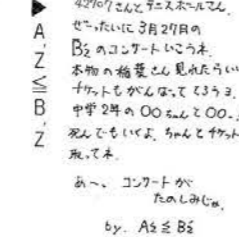 A'Z≦B'Z
42707さんとテニスボールさん、
ぜーったいに3月27日の
B'zのコンサートいこうネ.
本物の稲葉さん見れたらい
チケットもがんばってとろうヨ.
中学2年の〇〇ちゃんと〇〇
死んでもいいよ。ちゃんとチケット
取ってネ.
あ〜、コンサートが
たのしみじゃ。
by. A'z≦B'z